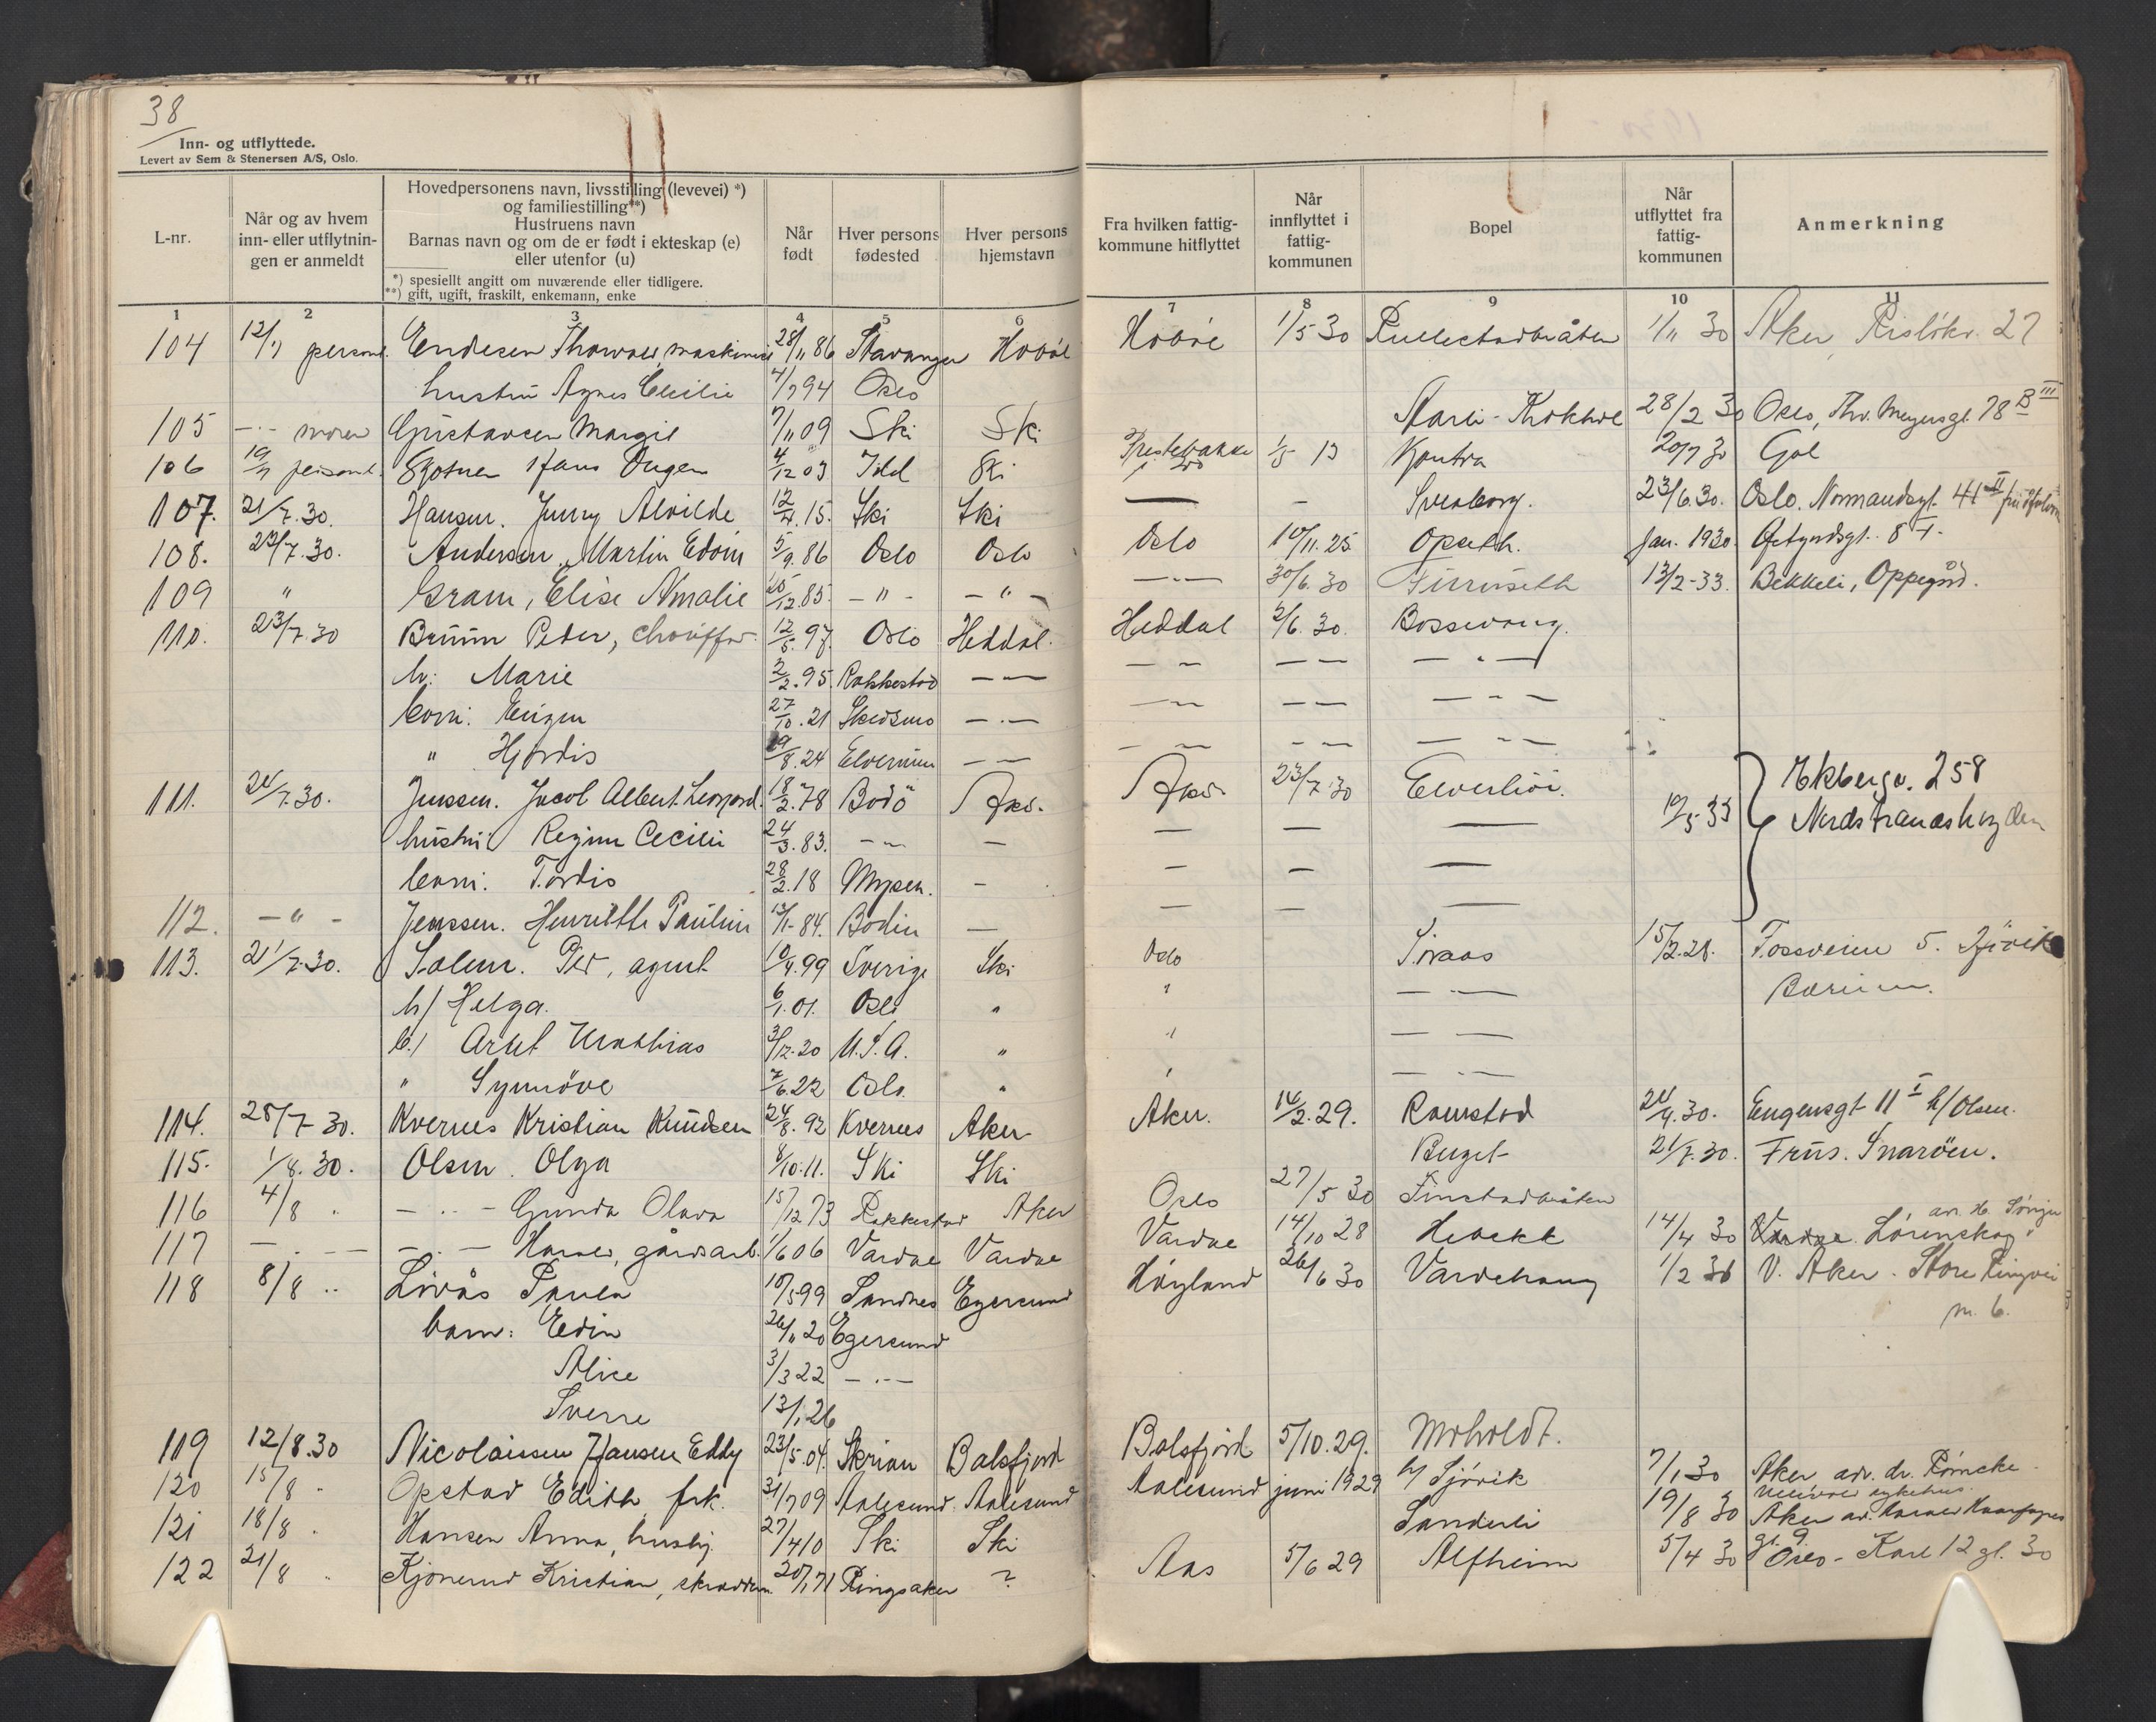 38
Inn- og utflyttede.
Levert av Sem & Stenersen A/S, Oslo.
L-nr.
Når og av hvem inn- eller utflytnin- gen er anmeldt
Hovedpersonens navn, livsstilling (levevei) *)
og familiestilling **)
Hustruens navn
Barnas navn og om de er født i ekteskap (e)
eller utenfor (u)
*) spesiellt angitt om nuværende eller tidligere.
**) gift, ugift, fraskilt, enkemann, enke
Når født
Hver persons fødested
Hver persons hjemstavn
Fra hvilken fattig- kommune hitflyttet
Når innflyttet i fattig- kommunen
Bopel
Når utflyttet fra fattig- kommunen
Anmerkning
1 2 3 4 5 6 7 8 9 10 11
104 12/7 personl. Endresen Thorvald, maskinist 28/11 86 Stavanger Hobøl Hobøl 1/5 30 1/11 30 Aker, Risløkv. 27
hustru Agnes Cecilie 4/7 94 Oslo
105 -"- moren Gustavsen Margit 7/11 09 Ski Ski 28/2 30 Oslo, Thv. Meyersgt. 78 B III
106 19/7 personl. Hans 4/12 03 Idd Ski Prestebakke 1/5 13 Kontra 20/7 30 Gol
107. 21/7.30. Hansen. Jenny Alvilde 12/4.15. Ski Ski — - Svenborg. 23/6.30. Oslo. Normandsgt. 41 II
108. 22/7.30. Andersen, Martin Edvin 5/9.86 Oslo Oslo Oslo 10/11.25 Opseth. Jan. 1930. 8 I.
109 " Gram, Elise Amalie 25/12.85. -"- -"- -"- 30/6.30 Finnseth 13/2-33. Bekkeli, Oppegård.
110. 23/7.30 Bruun Peter, chauffør 12/5.97. Oslo Heddal. Heddal 2/6.30. Bossevang.
h: Marie 2/2.95. Rakkestad -"- -"- -"- -"-
barn: Eugen 27/10.21 Skedsmo -"- -"- -"- -"-
" Hjørdis 19/8.24 Elverum -"- -"- -"- -"-
111. 24/7.30. Jenssen. Jacob Albert Leonard. 18/2.78 Bodö Ask. Ask. 23/7.30 Elverhöi. 19/5 33 Ekbergv. 258
Nordstrandshøgden
hustru Regine Cecilie 24/3.83. -"- — — — —
barn: Tordis 28/2.18 Mysen. - — — —
112. -"- Jenssen. Henriette Pauline 13/1-84. Bodin — — — —
113. 21/7.30. Solem. Per, agent 10/4.99 Sverige Ski Oslo Siraas 15/2.28. Fossveien 5.
h/ Helga. 6/1.01. Oslo " " -"- Bærum.
b./ Mathias 31/12.20 U.S.A. " " -"-
" Synnöve 7/6.22 Oslo. " " -"-
114. 28/7 30. Kvernes Kristian Knudsen 24/8.92 Kvernes Aker Aker. 14/2.29. Ramstad 24/4.30. Eugensgt 11 I h/Olsen.
115. 1/8.30. Olsen. Olga 8/10.11. Ski Ski Berget 21/7.30. Snaröen.
116 4/8 " -"- Gunda Olava 15/12 73 Rakkestad Aker Oslo 27/5 30 Finstadbråten
117 -"- -"- Harald, gårdsarb. 1/6 06 Vardø Vardø Vardø 14/10 28 Hebekk 14/4 30 Vardø Lørenskog
118 8/8 " Livås Paula 10/5 99 Sandnes Egersund Høyland 26/6 30 Vardehaug 1/2 31 V. Aker. Store Ringvei
m. 6.
barn: Edin 26/11 20 Egersund
Alice 3/3 22 -"-
Sverre 13/1 26
119 12/8.30 Nicolaissen Hansen Eddy 23/5.04. Balsfjord Balsfjord 5/10.29. Moholdt.
120 15/8 " Opstad Edith, frk. 31/7 09 Aalesund Aalesund Aalesund juni 1929 h/ Sjøvik 7/1 30 Aker adr. dr. Röncke
Ullevål sykehus
121 18/8 " Hansen Anna, hushj. 27/4 10 Ski Ski Sanderli 19/8 30 Aker ad. Harald Haarfagres
gt. 9.
122 21/8 " Kjönerud Kristian, skredder. 20/1 71 Ringsaker ? Aas 5/6 29 Alfheim 5/4 30 Oslo - Karl 12 gt. 30